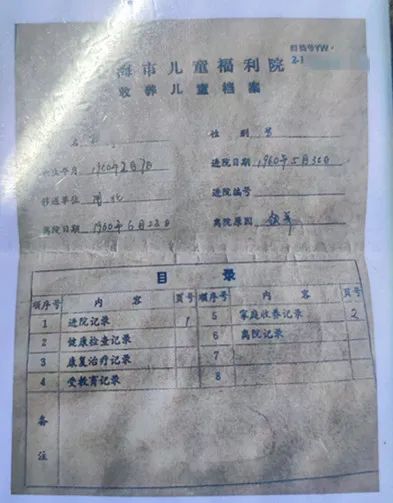 归档号YW·
2-1
海市儿童福利院
收养儿童档案
名
性别 男
出生年月 1960年2月7日
进院日期 1960年5月30日
移送单位 闸北
进院编号
离院日期 1960年6月23日
离院原因 领养
目录
顺序号 内容 页号 顺序号 内容 页号
1 进院记录 1 5 家庭收养记录 2
2 健康检查记录 6 离院记录
3 康复治疗记录 7
4 受教育记录 8
备注